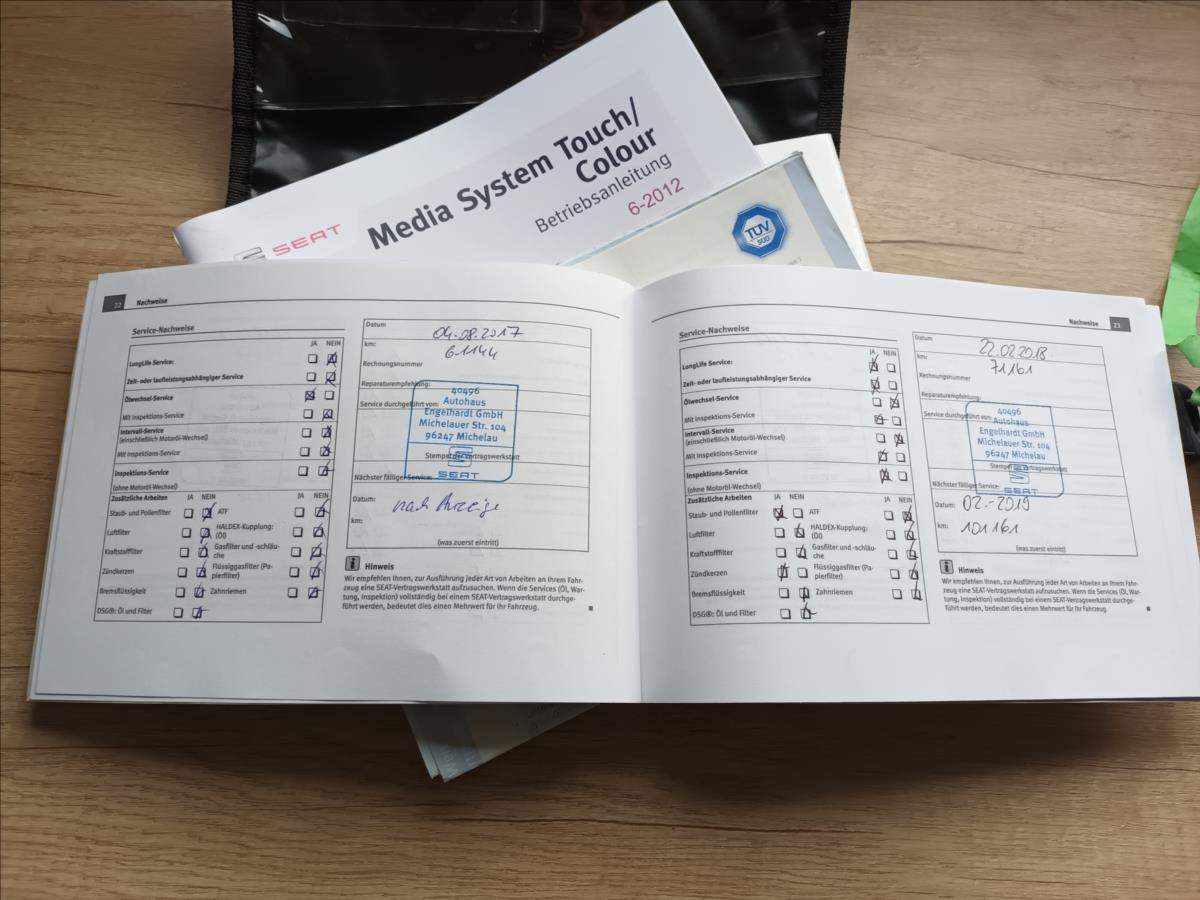 Media System Touch/
Colour
Betriebsanleitung
6-2012
SEAT
TÜV
SÜD
22 Nachweise
Service-Nachweise
JA NEIN
LongLife Service:
Zeit- oder laufleistungsabhängiger Service
Ölwechsel-Service
Mit Inspektions-Service
Intervall-Service
(einschließlich Motoröl-Wechsel)
Mit Inspektions-Service
Inspektions-Service
(ohne Motoröl-Wechsel)
Zusätzliche Arbeiten JA NEIN JA NEIN
Staub- und Pollenfilter ATF
Luftfilter HALDEX-Kupplung:
(Öl)
Kraftstofffilter Gasfilter und -schläu-
che
Zündkerzen Flüssiggasfilter (Pa-
pierfilter)
Bremsflüssigkeit Zahnriemen
DSG®: Öl und Filter
Datum 04.08.2017
km: 61144
Rechnungsnummer
Reparaturempfehlung:
Service durchgeführt von:
40496
Autohaus
Engelhardt GmbH
Michelauer Str. 104
96247 Michelau
Stempel der Vertragswerkstatt
SEAT
Nächster fälliger Service:
Datum: nach Anzeige
km:
(was zuerst eintritt)
Hinweis
Wir empfehlen Ihnen, zur Ausführung jeder Art von Arbeiten an Ihrem Fahr-
zeug eine SEAT-Vertragswerkstatt aufzusuchen. Wenn die Services (Öl, War-
tung, Inspektion) vollständig bei einem SEAT-Vertragswerkstatt durchge-
führt werden, bedeutet dies einen Mehrwert für Ihr Fahrzeug.
Nachweise 23
Service-Nachweise
JA NEIN
LongLife Service:
Zeit- oder laufleistungsabhängiger Service
Ölwechsel-Service
Mit Inspektions-Service
Intervall-Service
(einschließlich Motoröl-Wechsel)
Mit Inspektions-Service
Inspektions-Service
(ohne Motoröl-Wechsel)
Zusätzliche Arbeiten JA NEIN JA NEIN
Staub- und Pollenfilter ATF
Luftfilter HALDEX-Kupplung:
(Öl)
Kraftstofffilter Gasfilter und -schläu-
che
Zündkerzen Flüssiggasfilter (Pa-
pierfilter)
Bremsflüssigkeit Zahnriemen
DSG®: Öl und Filter
Datum 22.02.2018
km: 71161
Rechnungsnummer
Reparaturempfehlung:
Service durchgeführt von:
40496
Autohaus
Engelhardt GmbH
Michelauer Str. 104
96247 Michelau
Stempel der Vertragswerkstatt
SEAT
Nächster fälliger Service:
Datum: 02.-2019
km: 101161
(was zuerst eintritt)
Hinweis
Wir empfehlen Ihnen, zur Ausführung jeder Art von Arbeiten an Ihrem Fahr-
zeug eine SEAT-Vertragswerkstatt aufzusuchen. Wenn die Services (Öl, War-
tung, Inspektion) vollständig bei einem SEAT-Vertragswerkstatt durchge-
führt werden, bedeutet dies einen Mehrwert für Ihr Fahrzeug.